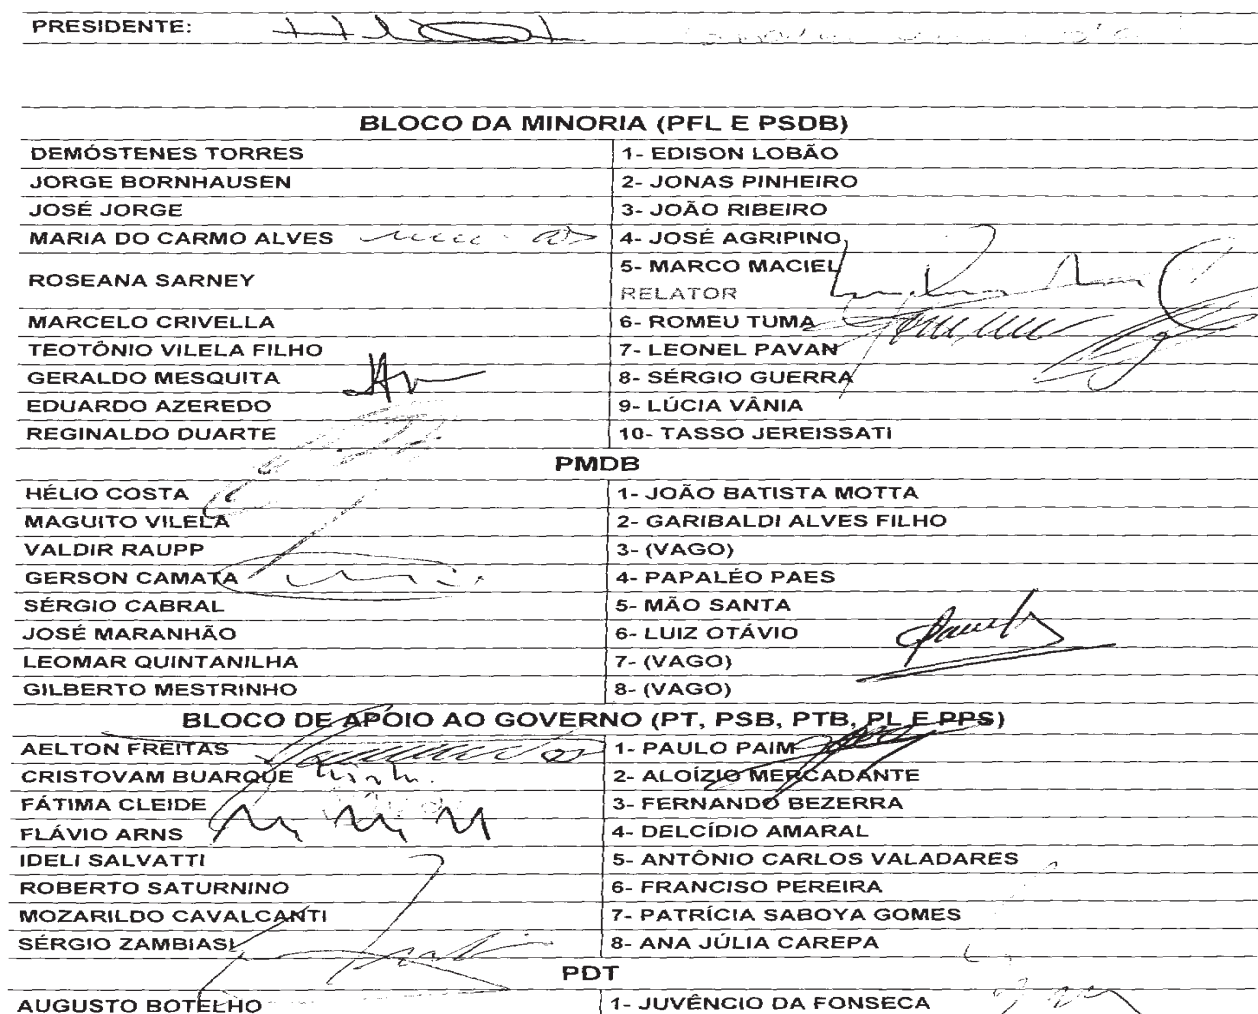 PRESIDENTE:
BLOCO DA MINORIA (PFL E PSDB)
DEMÓSTENES TORRES 1- EDISON LOBÃO
JORGE BORNHAUSEN 2- JONAS PINHEIRO
JOSÉ JORGE 3- JOÃO RIBEIRO
MARIA DO CARMO ALVES 4- JOSÉ AGRIPINO
ROSEANA SARNEY 5- MARCO MACIEL
RELATOR
MARCELO CRIVELLA 6- ROMEU TUMA
TEOTÔNIO VILELA FILHO 7- LEONEL PAVAN
GERALDO MESQUITA 8- SÉRGIO GUERRA
EDUARDO AZEREDO 9- LÚCIA VÂNIA
REGINALDO DUARTE 10- TASSO JEREISSATI
PMDB
HÉLIO COSTA 1- JOÃO BATISTA MOTTA
MAGUITO VILELA 2- GARIBALDI ALVES FILHO
VALDIR RAUPP 3- (VAGO)
GERSON CAMATA 4- PAPALÉO PAES
SÉRGIO CABRAL 5- MÃO SANTA
JOSÉ MARANHÃO 6- LUIZ OTÁVIO
LEOMAR QUINTANILHA 7- (VAGO)
GILBERTO MESTRINHO 8- (VAGO)
BLOCO DE APOIO AO GOVERNO (PT, PSB, PTB, PL E PPS)
AELTON FREITAS 1- PAULO PAIM
CRISTOVAM BUARQUE 2- ALOÍZIO MERCADANTE
FÁTIMA CLEIDE 3- FERNANDO BEZERRA
FLÁVIO ARNS 4- DELCÍDIO AMARAL
IDELI SALVATTI 5- ANTÔNIO CARLOS VALADARES
ROBERTO SATURNINO 6- FRANCISO PEREIRA
MOZARILDO CAVALCANTI 7- PATRÍCIA SABOYA GOMES
SÉRGIO ZAMBIASI 8- ANA JÚLIA CAREPA
PDT
AUGUSTO BOTELHO 1- JUVÊNCIO DA FONSECA